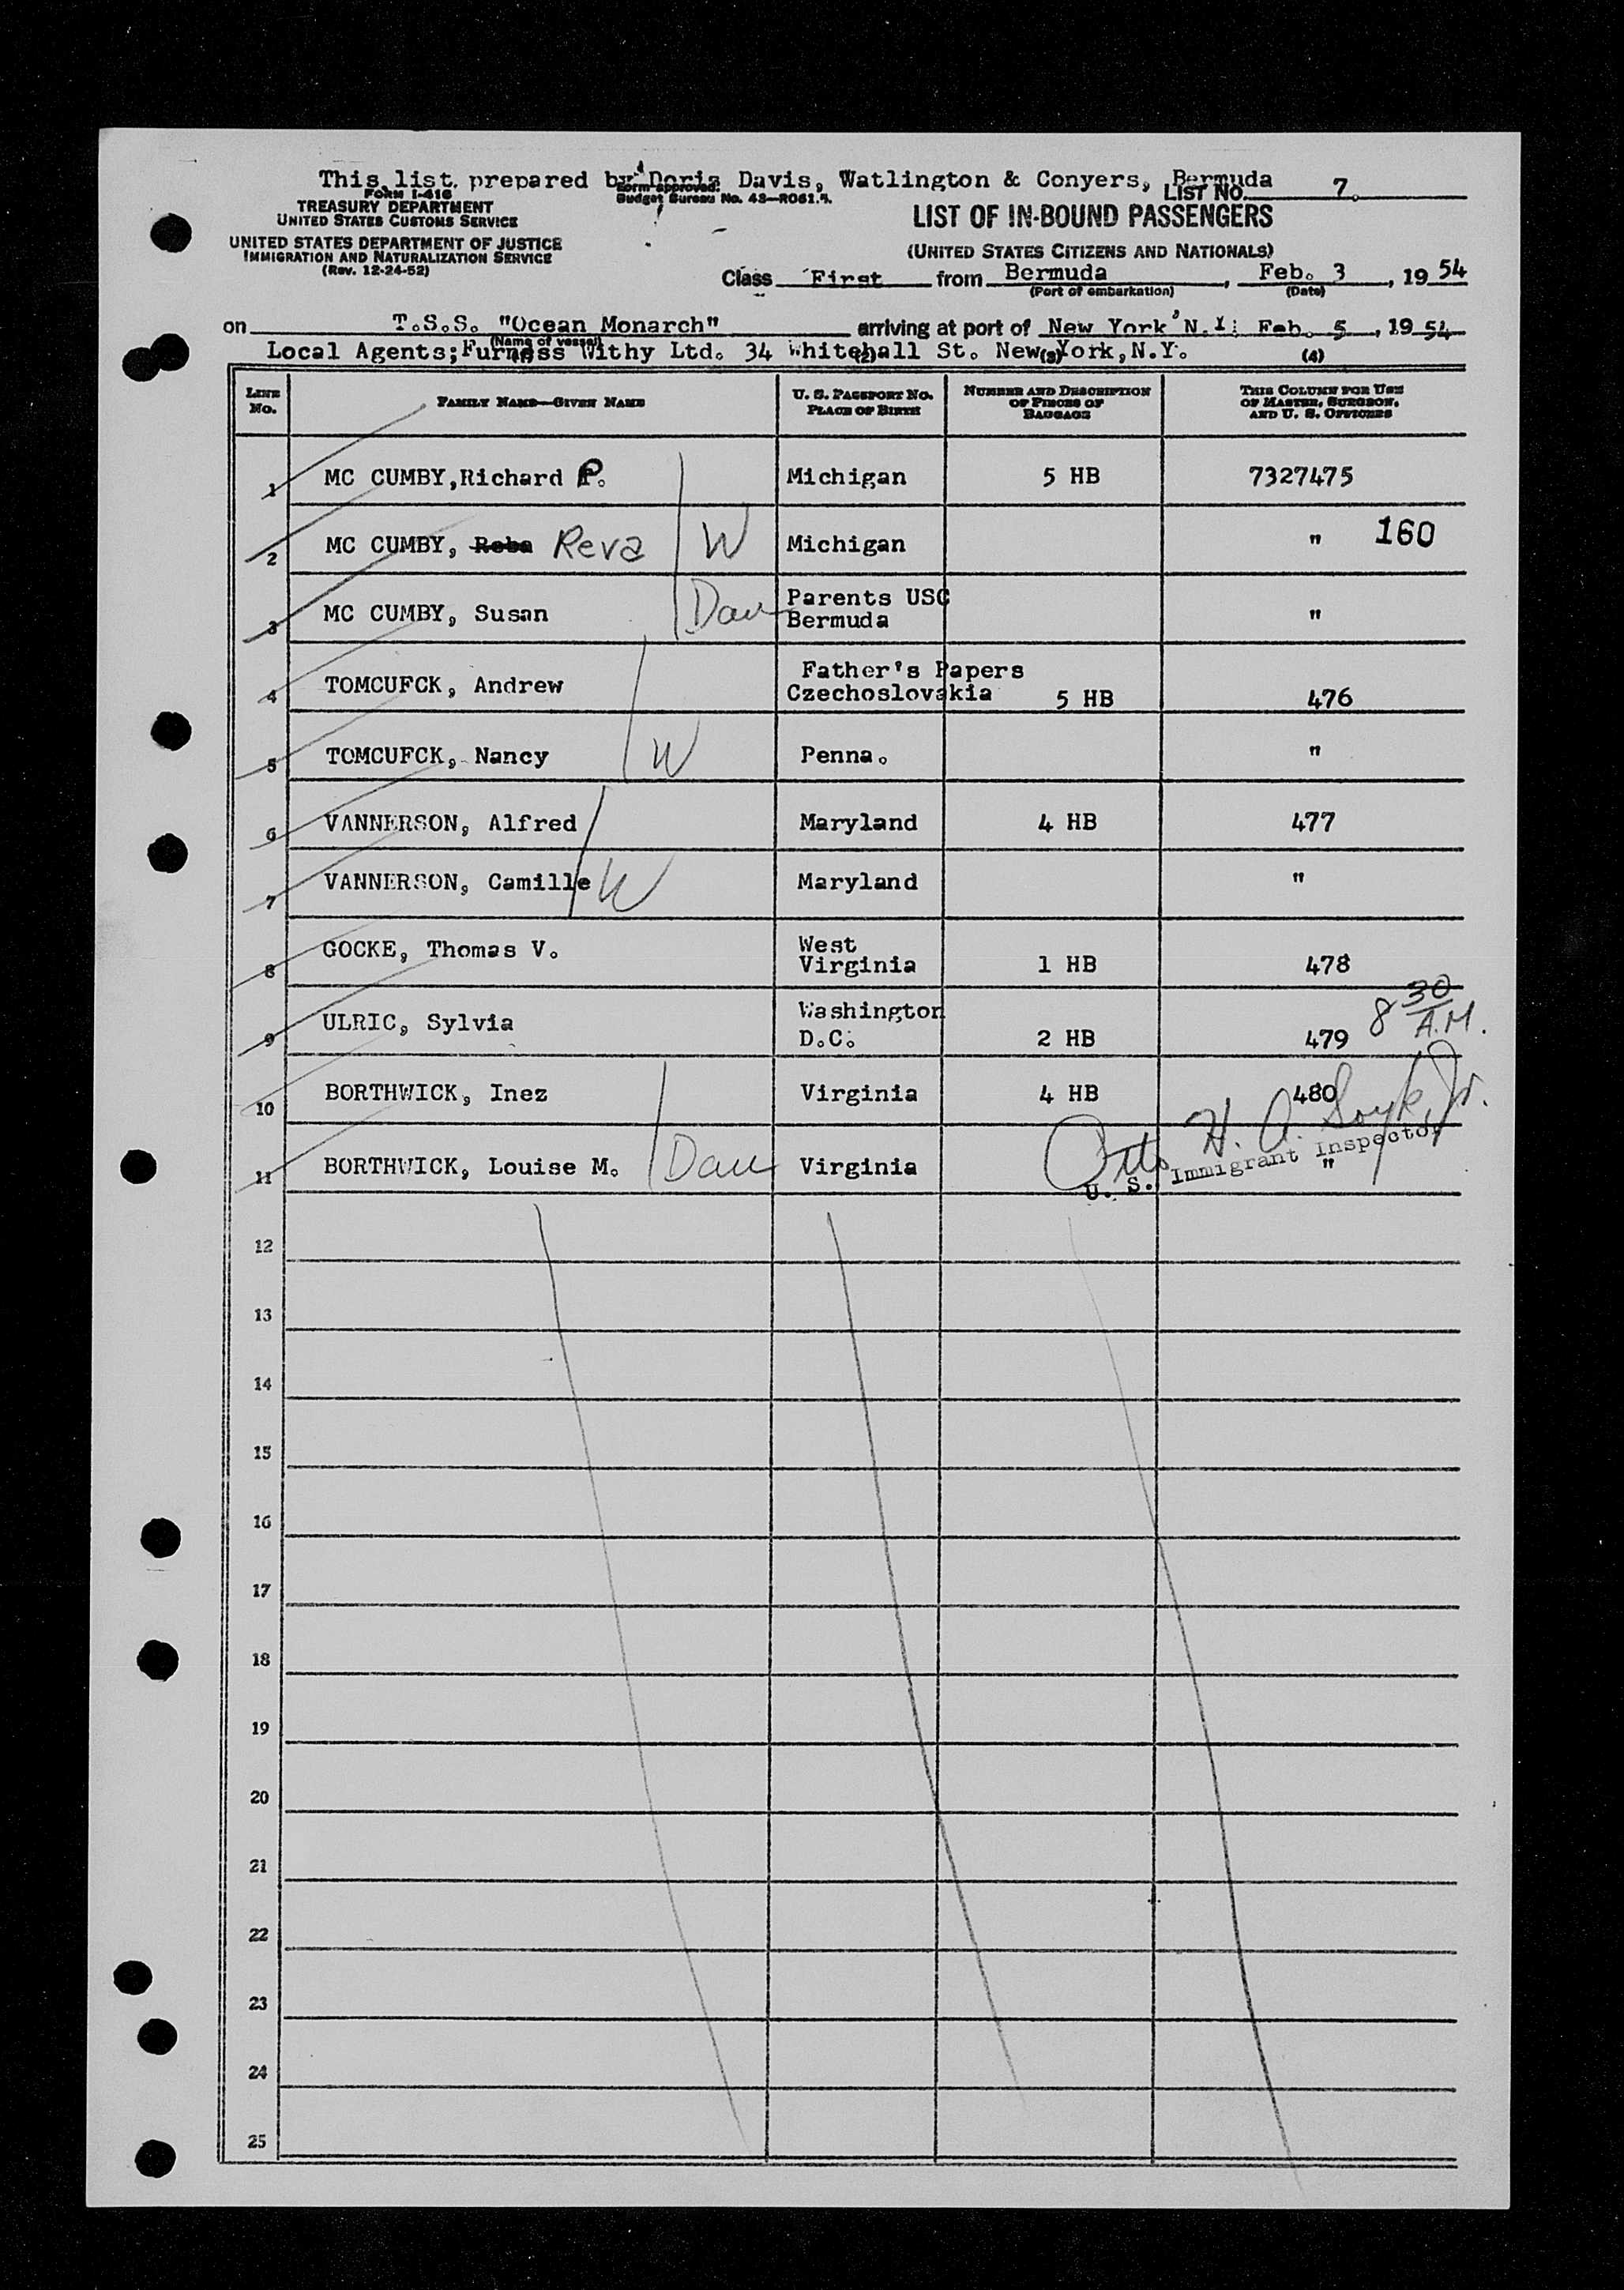 This list prepared by Doris Davis, Watlington & Conyers, Bermuda
FORM I-416
TREASURY DEPARTMENT
UNITED STATES CUSTOMS SERVICE
UNITED STATES DEPARTMENT OF JUSTICE
IMMIGRATION AND NATURALIZATION SERVICE
(Rev. 12-24-52)
Form approved.
Budget Bureau No. 43-R061.4.
LIST NO. 7.
LIST OF IN-BOUND PASSENGERS
(UNITED STATES CITIZENS AND NATIONALS)
Class First from Bermuda, Feb. 3, 19 54
(Port of embarkation) (Date)
on T.S.S. "Ocean Monarch" arriving at port of New York N.Y. Feb. 5, 19 54
(Name of vessel)
Local Agents; Furness Withy Ltd. 34 Whitehall St. New York, N.Y.
(1) (2) (3) (4)
LINE NO. FAMILY NAME—GIVEN NAME U. S. PASSPORT NO. PLACE OF BIRTH NUMBER AND DESCRIPTION OF PIECES OF BAGGAGE THIS COLUMN FOR USE OF MASTER, SURGEON, AND U. S. OFFICERS
1 MC CUMBY, Richard P. Michigan 5 HB 7327475
2 MC CUMBY, Reba Reva W Michigan " 160
3 MC CUMBY, Susan Dau Parents USC Bermuda "
4 TOMCUFCK, Andrew Father's Papers Czechoslovakia 5 HB 476
5 TOMCUFCK, Nancy W Penna. "
6 VANNERSON, Alfred Maryland 4 HB 477
7 VANNERSON, Camille W Maryland "
8 GOCKE, Thomas V. West Virginia 1 HB 478
9 ULRIC, Sylvia Washington D.C. 2 HB 479 8 30 A.M.
10 BORTHWICK, Inez Virginia 4 HB 480
11 BORTHWICK, Louise M. Dau Virginia "
Otto H. A. Jr.
U. S. Immigrant Inspector
12
13
14
15
16
17
18
19
20
21
22
23
24
25